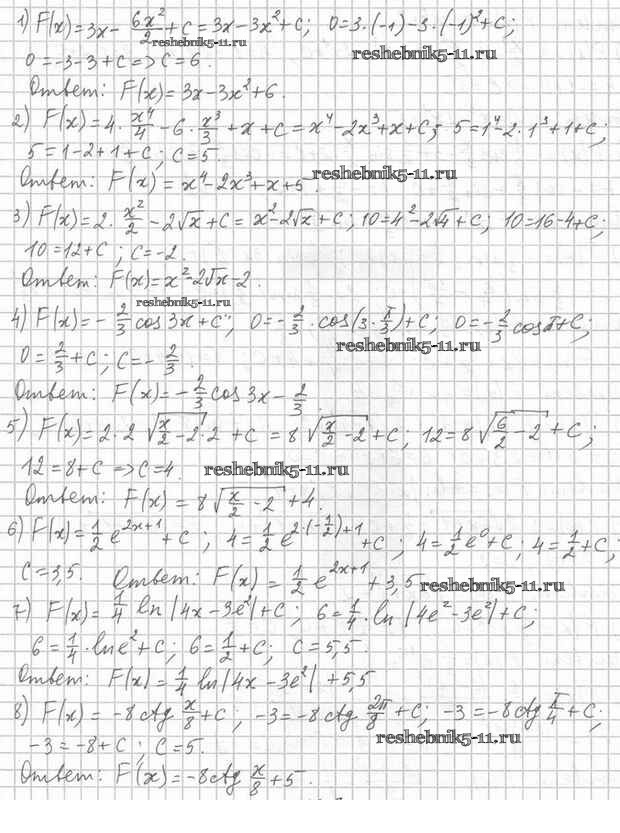 1) F(x)=3x- 6x²/2 +C=3x-3x²+C; 0=3·(-1)-3·(-1)²+C;
reshebnik5-11.ru
reshebnik5-11.ru
0=-3-3+C=>C=6.
Ответ: F(x)=3x-3x²+6.
2) F(x)=4·x⁴/4-6·x³/3+x+C=x⁴-2x³+x+C; 5=1⁴-2·1³+1+C;
5=1-2+1+C; C=5.
reshebnik5-11.ru
Ответ: F(x)=x⁴-2x³+x+5.
3) F(x)=2·x²/2-2√x+C=x²-2√x+C; 10=4²-2√4+C; 10=16-4+C;
10=12+C; C=-2.
Ответ: F(x)=x²-2√x-2.
reshebnik5-11.ru
4) F(x)=-2/3 cos3x+C; 0=-2/3·cos(3·π/3)+C; 0=-2/3 cosπ+C;
reshebnik5-11.ru
0=2/3+C; C=-2/3.
Ответ: F(x)=-2/3 cos3x-2/3.
5) F(x)=2·2√(x/2-2)·2+C=8√(x/2-2)+C; 12=8√(6/2-2)+C;
12=8+C=>C=4. reshebnik5-11.ru
Ответ: F(x)=8√(x/2-2)+4.
6) F(x)=1/2 e^(2x+1)+C; 4=1/2 e^(2·(-1/2)+1)+C; 4=1/2 e⁰+C; 4=1/2+C;
C=3,5. Ответ: F(x)=1/2 e^(2x+1)+3,5 reshebnik5-11.ru
7) F(x)=1/4 ln|4x-3e²|+C; 6=1/4·ln|4e²-3e²|+C;
6=1/4·lne²+C; 6=1/2+C; C=5,5.
Ответ: F(x)=1/4 ln|4x-3e²|+5,5
8) F(x)=-8ctg x/8+C; -3=-8ctg 2π/8+C; -3=-8ctg π/4+C;
reshebnik5-11.ru
-3=-8+C; C=5.
Ответ: F(x)=-8ctg x/8+5.